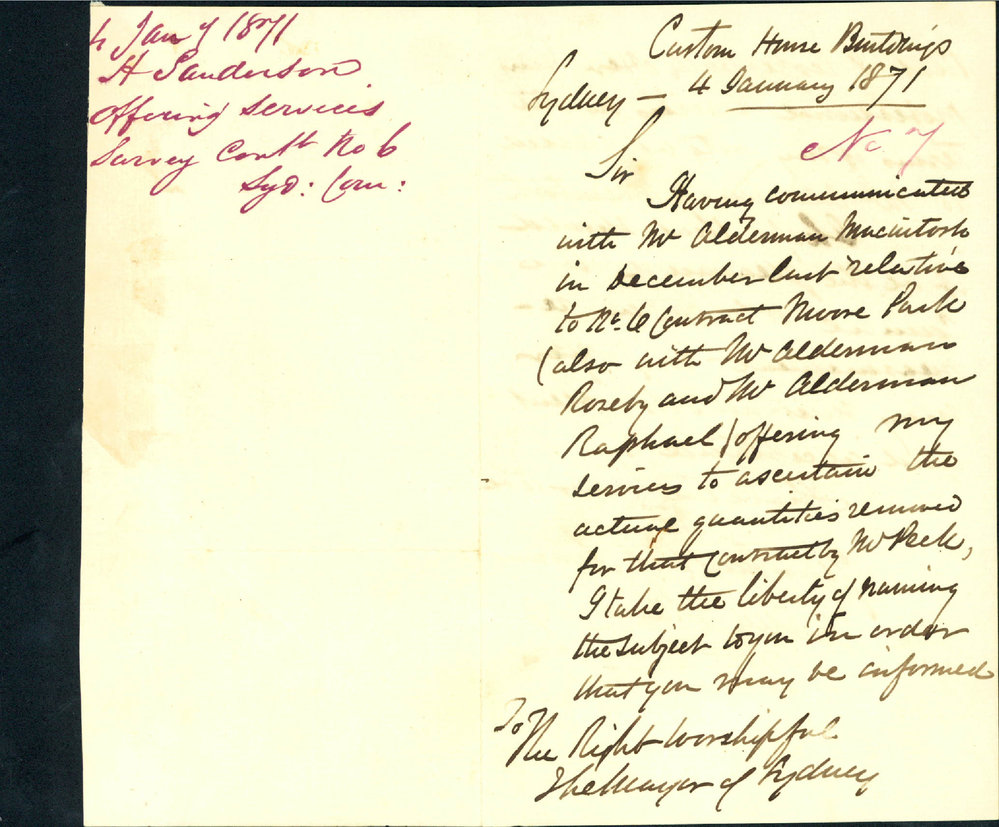 4 Jany 1871
H Sanderson
Offering Services
Survey Contt No 6
Syd: Com:
Custom House Buildings
Sydney – 4 January 1871
No 7
Sir
Having communicated
with Mr Alderman Macintosh
in December last relative
to No. 6 Contract Moore Park
(also with Mr Alderman
Roseby and Mr Alderman
Raphael) offering my
services to ascertain the
actual quantities removed
for that Contract by Mr Peek,
I take the liberty of naming
the subject to you in order
that you may be informed
To
The Right Worshipful
The Mayor of Sydney